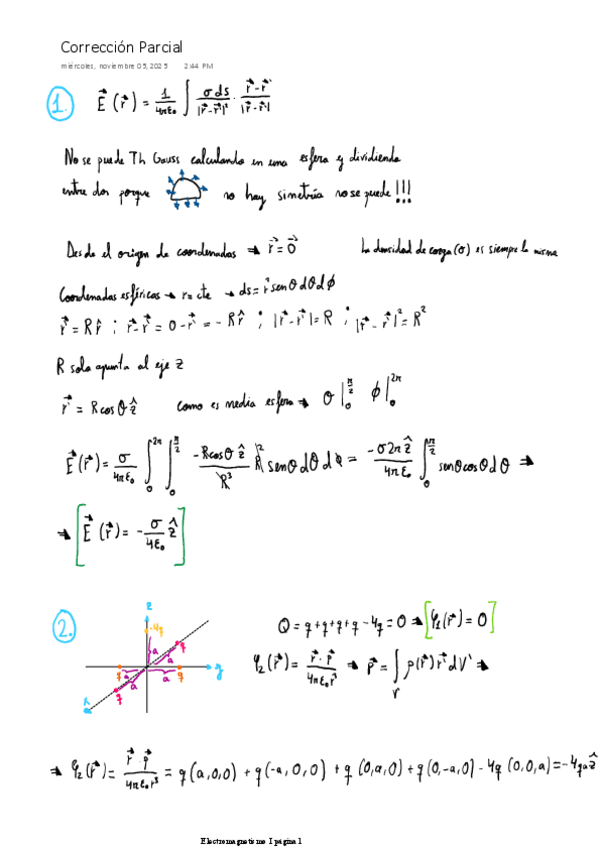 Corrección Parcial
miércoles, noviembre 05, 2025 2:44 PM
1. E⃗ (r⃗) = 1/4πε₀ ∫ σ ds/|r⃗-r⃗'|² · r⃗-r⃗'/|r⃗-r⃗'|
No se puede Th Gauss calculando en una esfera y dividiendo
entre dos porque no hay simetría no se puede!!!
Desde el origen de coordenadas → r⃗ = 0⃗ La densidad de carga (σ) es siempre la misma
Coordenadas esféricas → r = cte → ds = r² senθ dθ dϕ
r⃗' = R r̂ ; r⃗-r⃗' = 0 - r⃗' = - R r̂ ; |r⃗-r⃗'| = R ; |r⃗-r⃗'|² = R²
R solo apunta al eje z
r⃗' = R cosθ ẑ como es media esfera → θ|₀^π/2 ϕ|₀^2π
E⃗(r⃗) = σ/4πε₀ ∫₀^2π ∫₀^π/2 -R cosθ ẑ/R³ R² senθ dθ dϕ = -σ2π ẑ/4πε₀ ∫₀^π/2 senθ cosθ dθ ⇒
⇒ [E⃗ (r⃗) = - σ/4ε₀ ẑ]
2. Q = q + q + q + q - 4q = 0 ⇒ [φ₁(r⃗) = 0]
z
-4q
a
q
a
q
a
q
y
a
q
x
φ₂(r⃗) = r⃗ · p⃗/4πε₀ r³ ⇒ p⃗ = ∫ᵥ ρ(r⃗') r⃗' dV' ⇒
⇒ φ₂(r⃗) = r⃗ · p⃗/4πε₀ r³ = q(a,0,0) + q(-a,0,0) + q (0,a,0) + q(0,-a,0) - 4q (0,0,a) = -4qa ẑ
Electromagnetismo I página 1